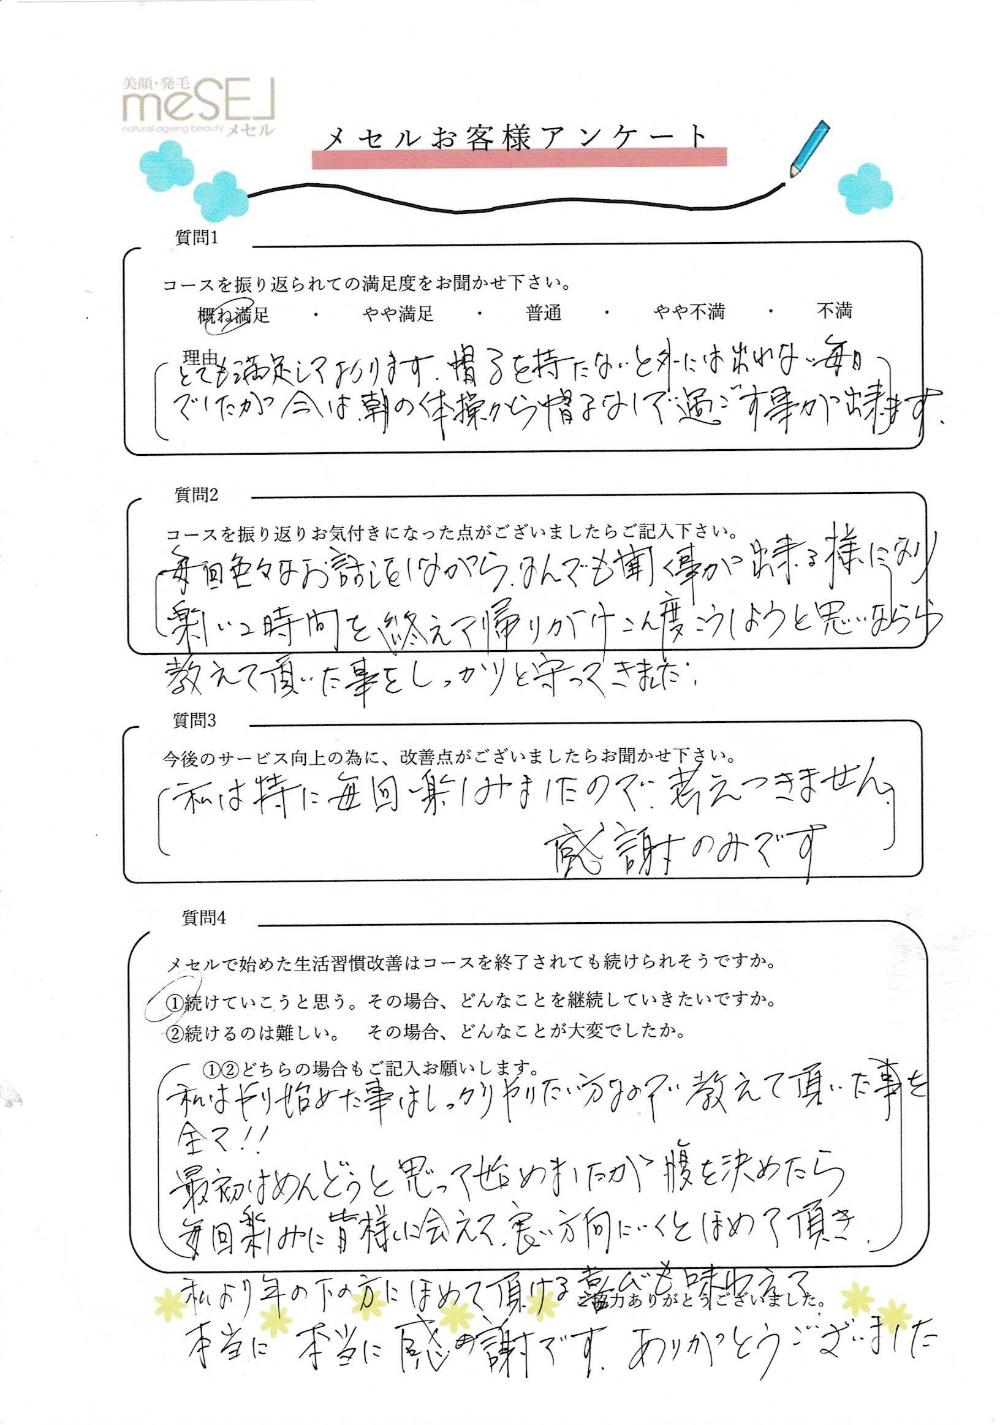 美顔・発毛
meSEL
natural ageing beauty メセル
メセルお客様アンケート
質問1
コースを振り返られての満足度をお聞かせ下さい。
概ね満足 ・ やや満足 ・ 普通 ・ やや不満 ・ 不満
理由
とても満足しております。帽子を持たないと外には出れない毎日
でしたが今は朝の体操から帽子なしで過ごす事が出来ます。
質問2
コースを振り返りお気付きになった点がございましたらご記入下さい。
毎回色々なお話しをしながら、なんでも聞く事が出来る様になり
楽しい2時間を終えて帰りがけこん度こうしようと思いながら
教えて頂いた事をしっかりと守ってきました。
質問3
今後のサービス向上の為に、改善点がございましたらお聞かせ下さい。
私は特に毎回楽しみましたので、考えつきません。
感謝のみです
質問4
メセルで始めた生活習慣改善はコースを終了されても続けられそうですか。
①続けていこうと思う。その場合、どんなことを継続していきたいですか。
②続けるのは難しい。 その場合、どんなことが大変でしたか。
①②どちらの場合もご記入お願いします。
私はやり始めた事はしっかりやりたい方なので教えて頂いた事を
全て!!
最初はめんどうと思って始めましたが腹を決めたら
毎回楽しみに皆様に会えて、良い方向にいくとほめて頂き、
私より年の下の方にほめて頂ける喜びも味わえて
ご協力ありがとうございました。
本当に 本当に 感謝です。ありがとうございました